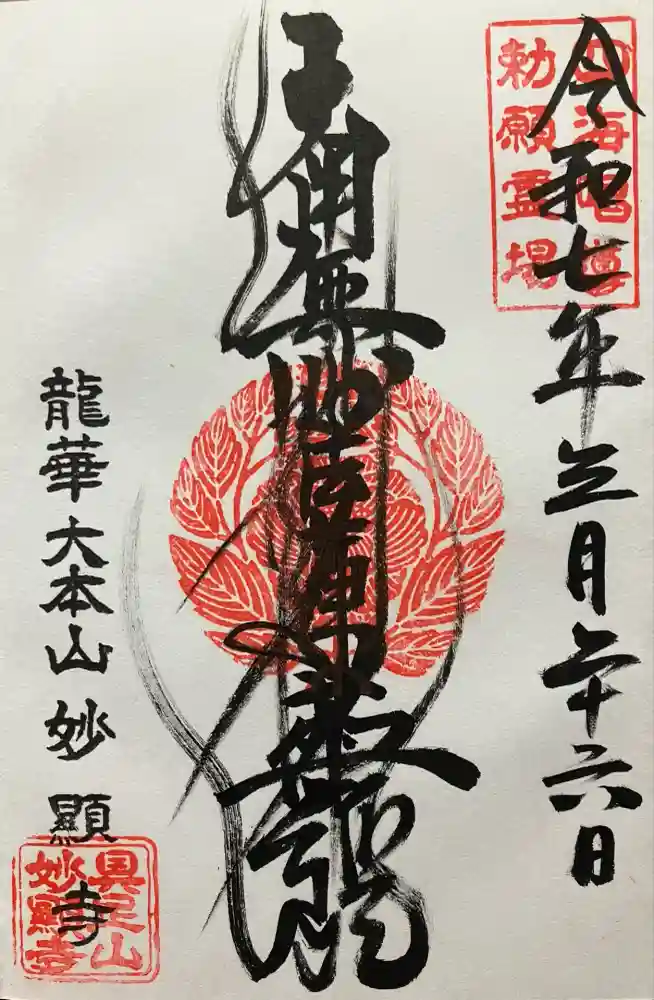 四海唱導
勅願霊場
令和七年三月二十六日
南無妙法蓮華経
龍華 大本山 妙顯寺
具足山
妙顯寺